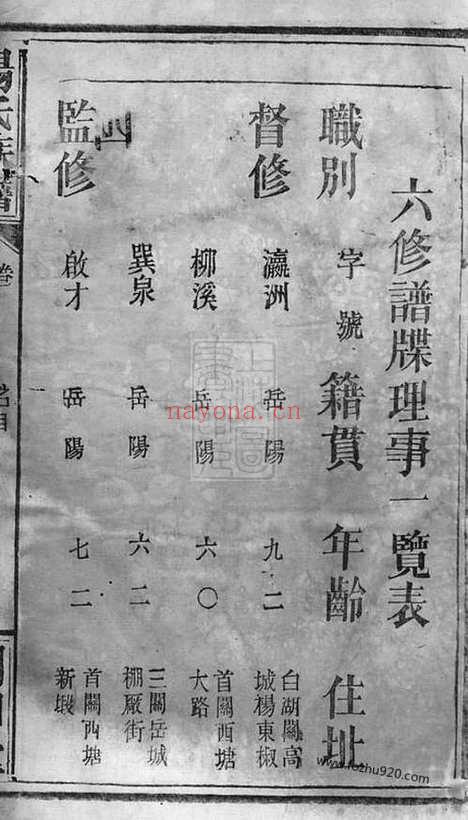 六修譜牒理事一覽表
職別 字號 籍貫 年齡 住址
督修 瀛洲 岳陽 九二 白湖關高城楊東椒
柳溪 岳陽 六〇 首關西塘大路
巽泉 岳陽 六二 三關岳城棚厰街
監修 啟才 岳陽 七二 首關西塘新塅
楊氏族譜
nayona.cn
www.fozhu920.com